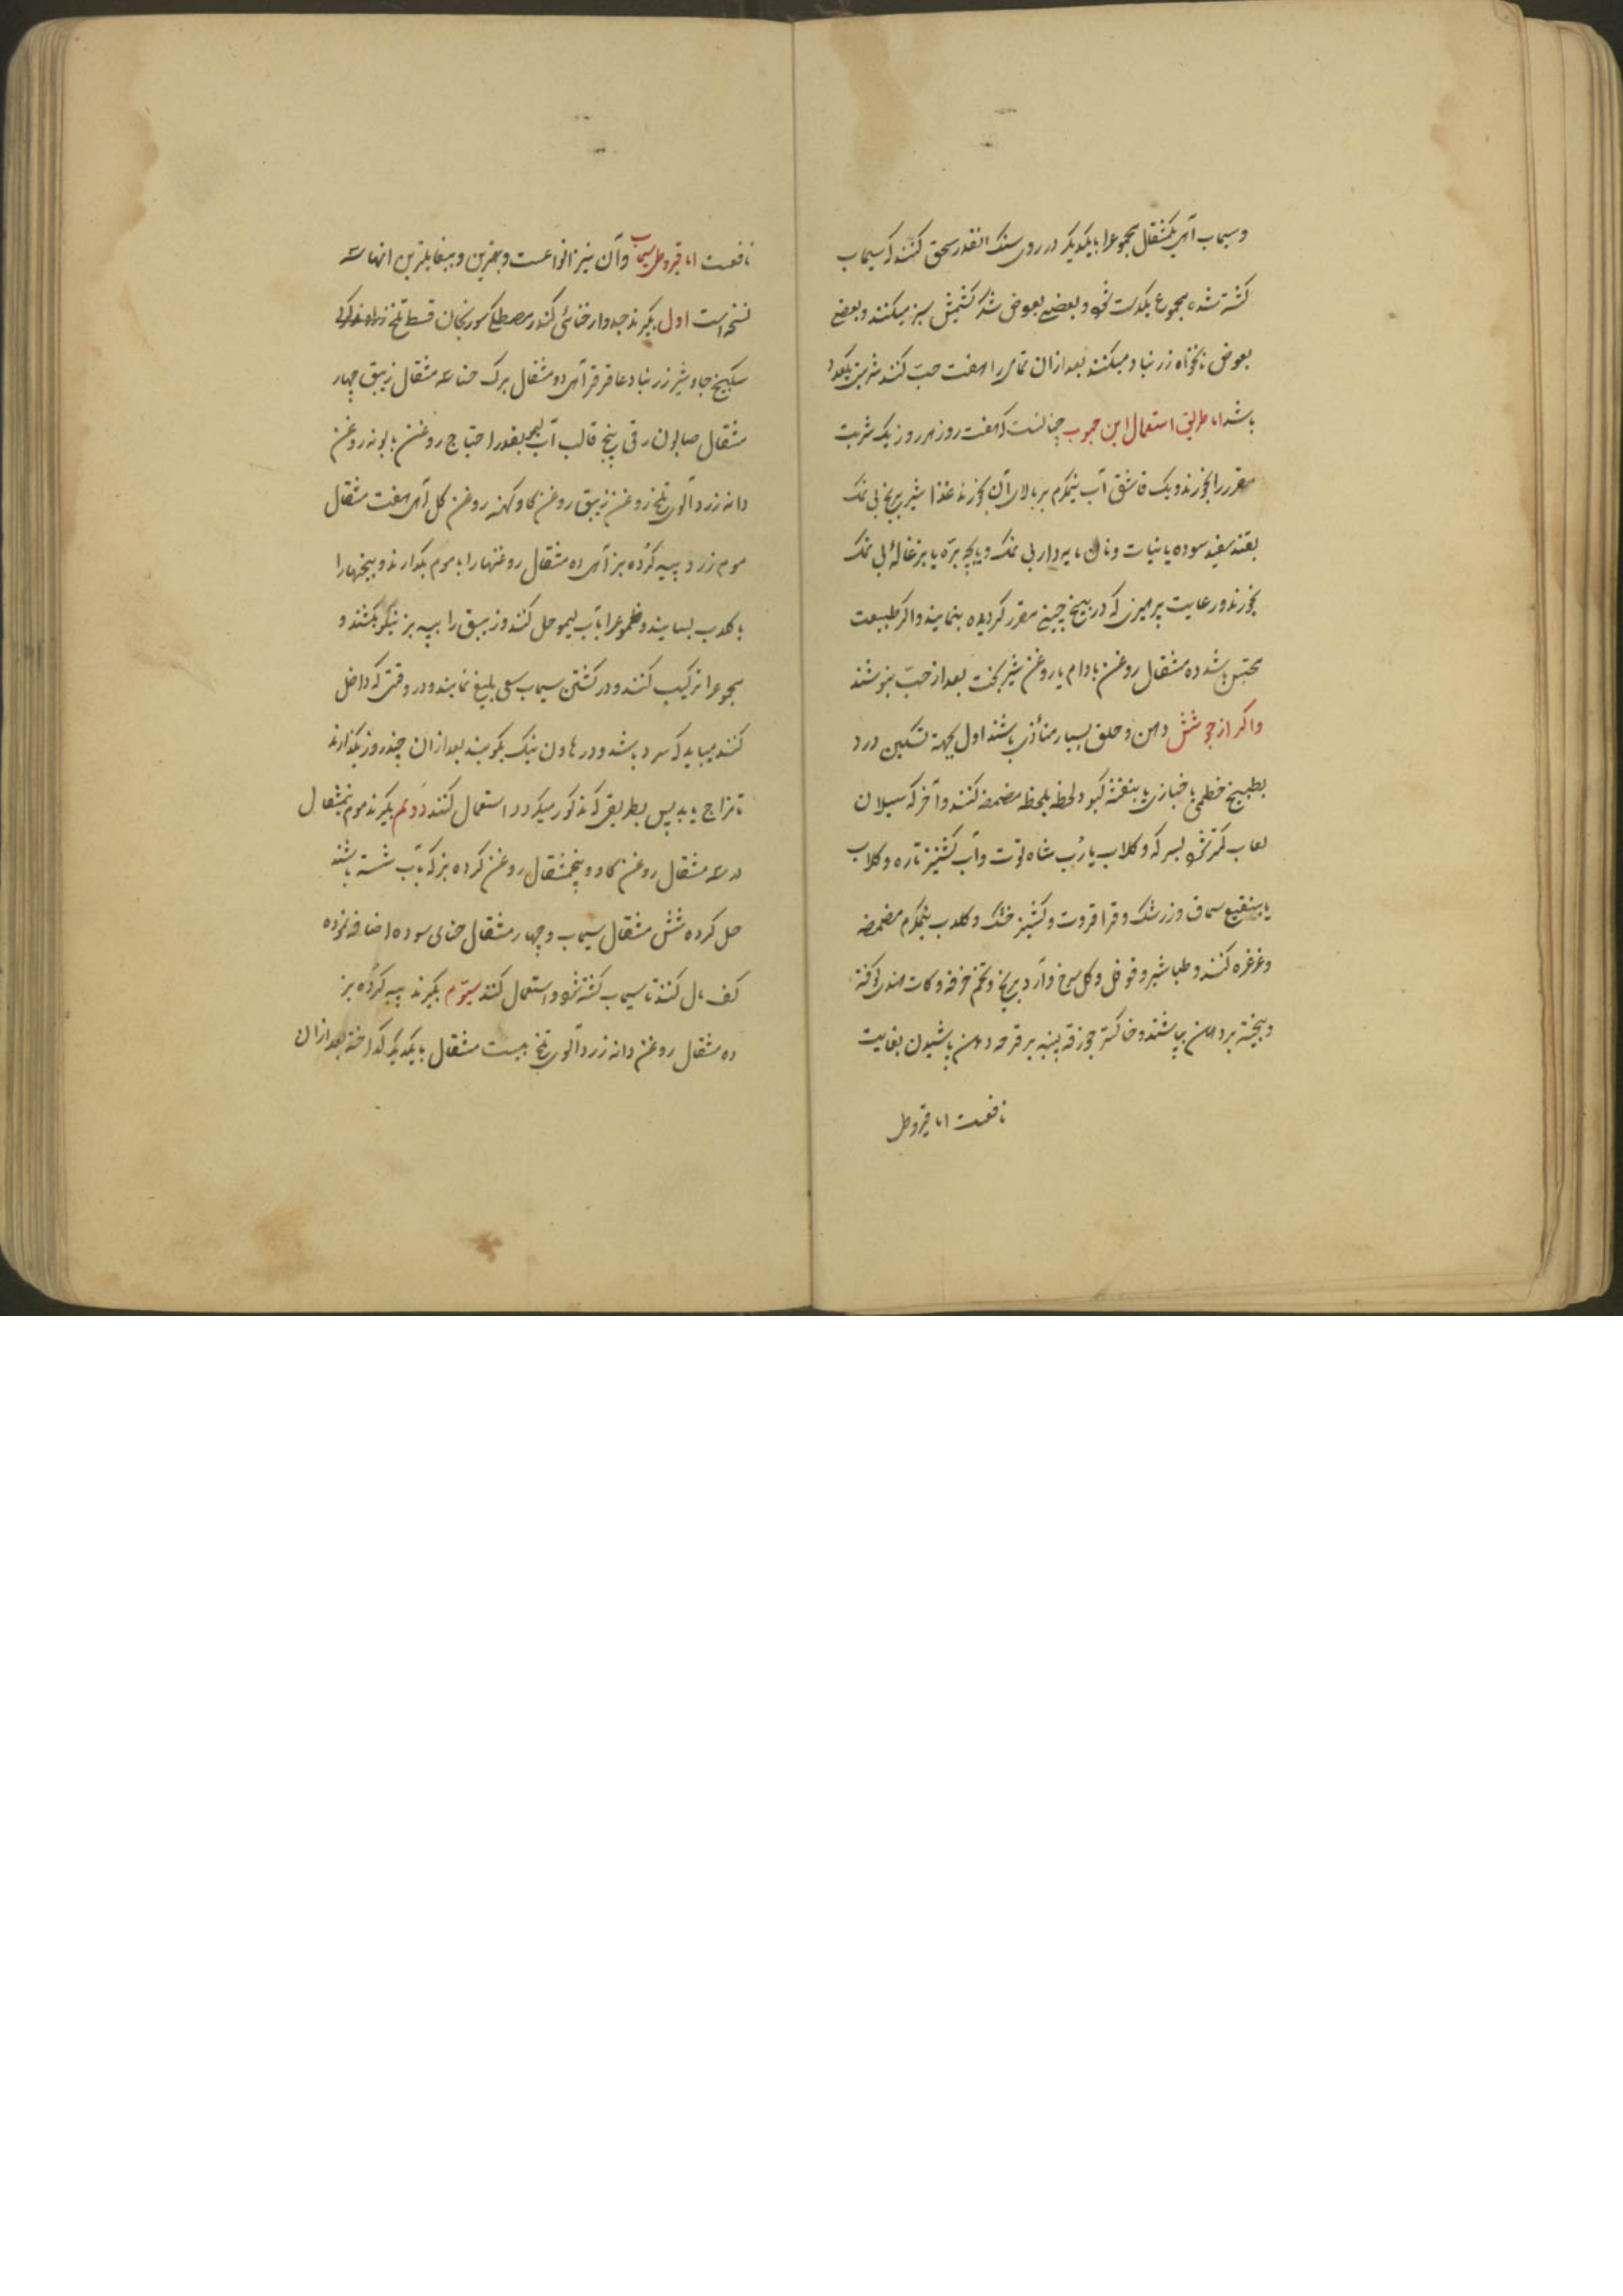 و سیماب از هر یک مثقال مجموع را بایکدیگر در روی سنک انقدر سحق کنند که سیماب
کشته شده مجموع یکدست شود و بعضی بعوض شکر کشمش سبز میکنند و بعضی
بعوض نخواه زرنباد میکنند بعد از ان تمامی را هفت حب کنند شربتی یکعدد
باشد اما طریق استعمال این حبوب چنانست که هفت روز هر روز یک شربت
مقرر را بخورند و یک قاشق آب نیمکرم بر بالای آن بخورند غذا شیر برنج بی نمک
بقند سفید سوده یا نبات و نان مایه دار بی نمک و پاچه بره یا بزغاله بی نمک
بخورند و رعایت پرهیزی که در بیخ چینی مقرر کردیده بنمایند و اکر طبیعت
محتبس باشد ده مثقال روغن بادام یا روغن شیر بخت بعد از حب بنوشند
و اکر از جوشش دهن و حلق بسیار متأذی باشند اول بجهة تسکین درد
بطبیخ خطمی یا خبازی یا بنفشه کبود لحظه بلحظه مضمضه کنند و آخر که سیلان
لعاب کمتر شود بسرکه و کلاب یا رب شاه توت و آب کشنیز تازه و کلاب
یا بنقیع سماق و زرشک و قراقروت و کشنیز خشک و کلاب نیمکرم مضمضه
و غرغره کنند و طباشیر و فوفل و کل سرخ و آرد برنج و تخم خرفه و کات هندی کوفته
و بیخته بر دهن بپاشند و خاکستر جوزقه پنبه بر قرحه دهن پاشیدن بغایت
نافعست اما قیروطی
نافعست اما قیروطی سیماب و آن نیز انواعست و بهترین و بیغایلترین انها سه
نسخه است اول بکیرند جدوار خطائی کندر مصطکی سورنجان قسط تلخ
سکبینج جاوشیر زرنباد عاقرقرحا از هر یک دو مثقال برک حنا سه مثقال زیبق چهار
مثقال صابون رقی پنج قالب آب لیمو بقدر احتیاج روغن بابونه روغن
دانه زردآلوی تلخ روغن زنبق روغن کاو کهنه روغن کل از هر یک هفت مثقال
موم زرد پیه کرده بز از هر یک ده مثقال روغنها را با موم بکدازند و بیخها را
بکلاب بسایند و صموغ را بآب لیمو حل کنند و زیبق را بپیه بز نیکو بکشند و
مجموع را ترکیب کنند و در کشتن سیماب سعی بلیغ نمایند و در وقتی که داخل
کنند میباید که سرد باشد و در هاون نیک بکوبند بعد از ان چند روز بکذارند
تا مزاج یابد پس بطریقی که مذکور میکردد استعمال کنند دویم بکیرند موم نیمثقال
در سه مثقال روغن کاو و پنجمثقال روغن کرده بز که بآب شسته باشند
حل کرده شش مثقال سیماب و چهار مثقال حنای سوده اضافه نموده
کف مال کنند تا سیماب کشته شود و استعمال کنند سیوم بکیرند پیه کرده بز
ده مثقال روغن دانه زردآلوی تلخ بیست مثقال بایکدیکر کداخته بعد از ان